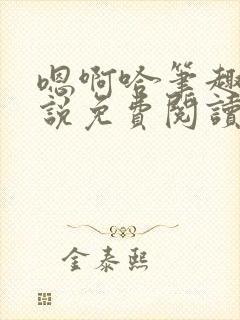 嗯啊哈筆趣
說免費閱讀
金泰熙